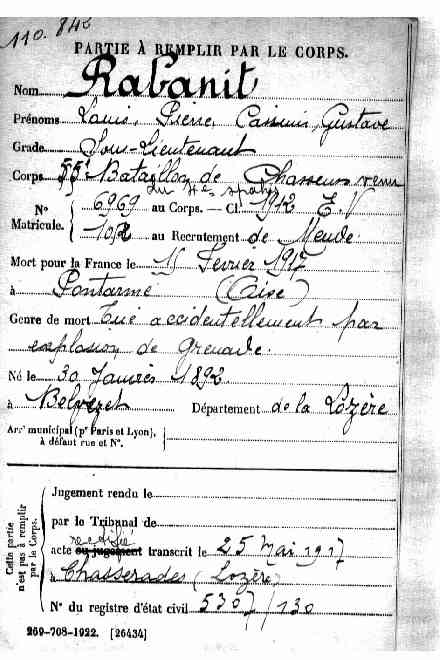 110.842
PARTIE À REMPLIR PAR LE CORPS.
Nom Rabanit
Prénoms Louis, Pierre, Casimir, Gustave
Grade Sous-Lieutenant
Corps 55e Bataillon de Chasseurs venu
du 4es spahis
N° Matricule. 6969 au Corps. — Cl. 1912 E.V
102 au Recrutement de Mende
Mort pour la France le 15 Février 1917
à Pontarmé (Oise)
Genre de mort Tué accidentellement par
explosion de Grenade.
Né le 30 Janvier 1892
à Belvezet Département de la Lozère
Arrt municipal (pr Paris et Lyon),
à défaut rue et N°.
Cette partie
n'est pas à remplir
par le Corps.
Jugement rendu le
par le Tribunal de
rectifié
acte ou jugement transcrit le 25 Mai 1917
à Chasseradès (Lozère)
N° du registre d'état civil 5307/130
269-708-1922. [26434]